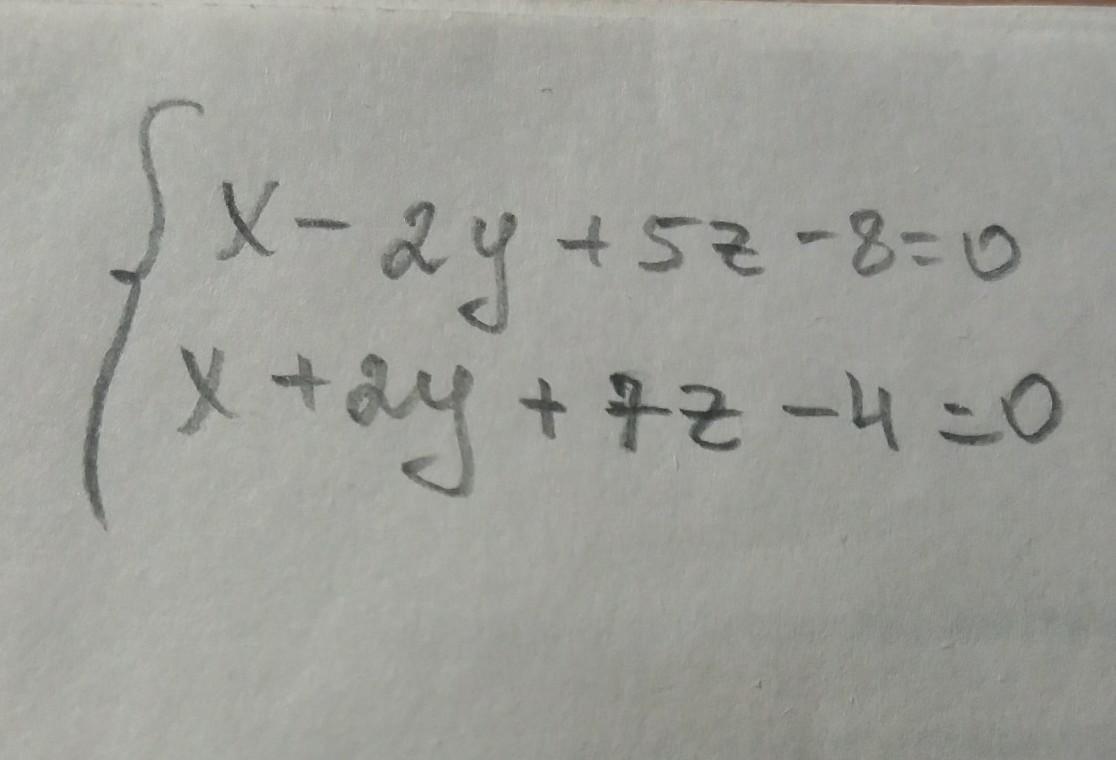 x - 2y + 5z - 8 = 0
x + 2y + 7z - 4 = 0